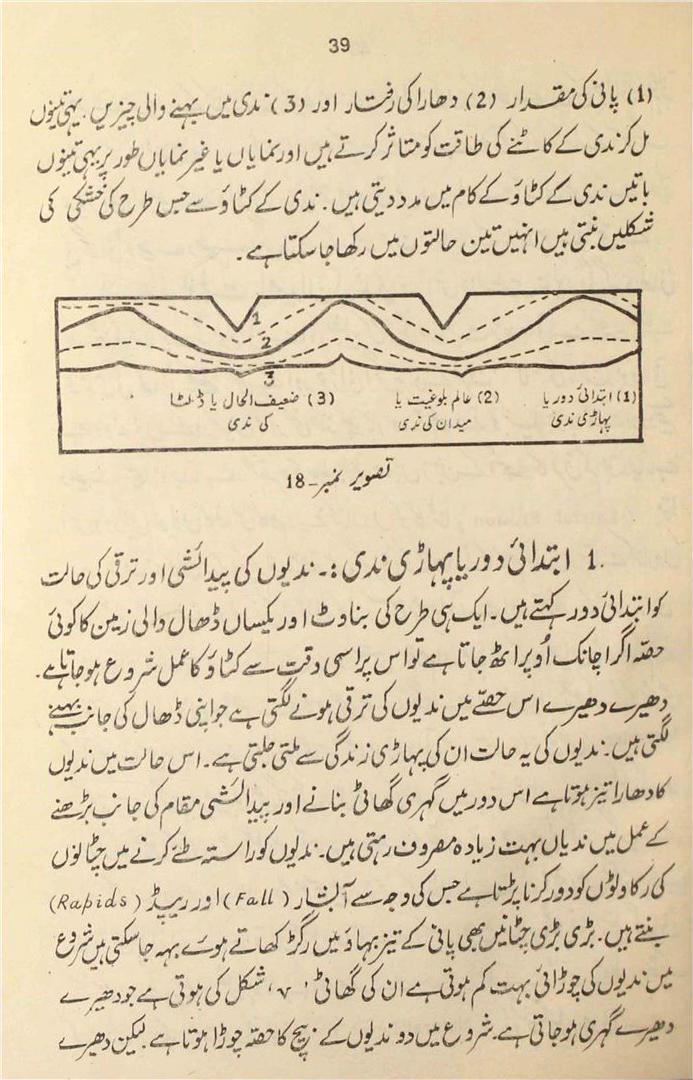 39
(1) پانی کی مقدار (2) دھارا کی رفتار اور (3) ندی میں بہنے والی چیزیں. یہی تینوں
مل کر ندی کے کاٹنے کی طاقت کو متاثر کرتے ہیں اور نمایاں یا غیر نمایاں طور پر یہی تینوں
باتیں ندی کے کٹاؤ کے کام میں مدد دیتی ہیں۔ ندی کے کٹاؤ سے جس طرح کی خشکی کی
شکلیں بنتی ہیں انہیں تین حالتوں میں رکھا جا سکتا ہے۔
1
2
3
(1) ابتدائی دور یا پہاڑی ندی
(2) عالم بلوغیت یا میدان کی ندی
(3) ضعیف الحال یا ڈلٹا کی ندی
تصویر نمبر-18
1. ابتدائی دور یا پہاڑی ندی:۔ ندیوں کی پیدائشی اور ترقی کی حالت
کو ابتدائی دور کہتے ہیں۔ ایک ہی طرح کی بناوٹ اور یکساں ڈھال والی زمین کا کوئی
حصّہ اگر اچانک اُوپر اٹھ جاتا ہے تو اس پر اسی وقت سے کٹاؤ کا عمل شروع ہو جاتا ہے۔
دھیرے دھیرے اس حصّے میں ندیوں کی ترقی ہونے لگتی ہے جو اپنی ڈھال کی جانب بہنے
لگتی ہیں۔ ندیوں کی یہ حالت ان کی پہاڑی زندگی سے ملتی جلتی ہے۔ اس حالت میں ندیوں
کا دھارا تیز ہوتا ہے اس دور میں گہری گھاٹی بنانے اور پیدائشی مقام کی جانب بڑھنے
کے عمل میں ندیاں بہت زیادہ مصروف رہتی ہیں۔ ندیوں کو راستہ طئے کرنے میں چٹانوں
کی رکاوٹوں کو دور کرنا پڑتا ہے جس کی وجہ سے آبشار (Fall) اور ریپڈ (Rapids)
بنتے ہیں۔ بڑی بڑی چٹانیں بھی پانی کے تیز بہاؤ میں رگڑ کھاتے ہوئے بہہ جا سکتی ہیں شروع
میں ندیوں کی چوڑائی بہت کم ہوتی ہے ان کی گھاٹی 'v' شکل کی ہوتی ہے جو دھیرے
دھیرے گہری ہو جاتی ہے۔ شروع میں دو ندیوں کے بیچ کا حصّہ چوڑا ہوتا ہے لیکن دھیرے